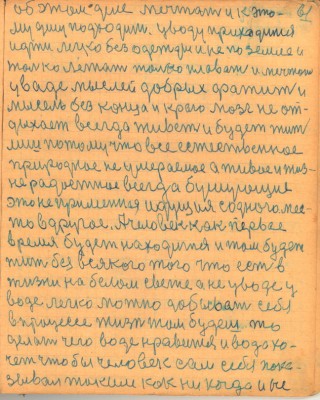 об этом деле мечтат и к это-
му дню подходит. уводу приходится
идти легко без одежди и не по земле а
только летат только плават и мечтат
уваде мыслей добрых хратит и
мысель без конца и краю мозг не от-
дыхает всегда живет и будет жит
лиш потому что все естественное
природное не умераемое а живое и
не радоетное всегда бушующие
это не приметная идущия содного мес-
та вдругое. А человек как первое
время будет находится и там будет
жит без всякого того что ест в
жизни на белом свете а не уводе у
воде легко можно добиват себя
впроцессе жизн там будеш то
делат чего воде нравется и вода хо-
чет чтобы человек сам себя пока-
зывал таким как ни когда и не